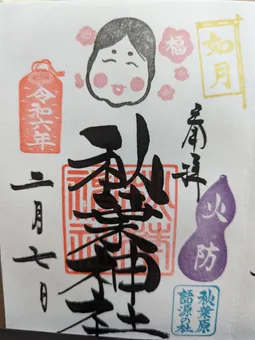 如月
福
奉拝
火防
秋葉神社
秋葉原
語源社
令和六年
二月七日